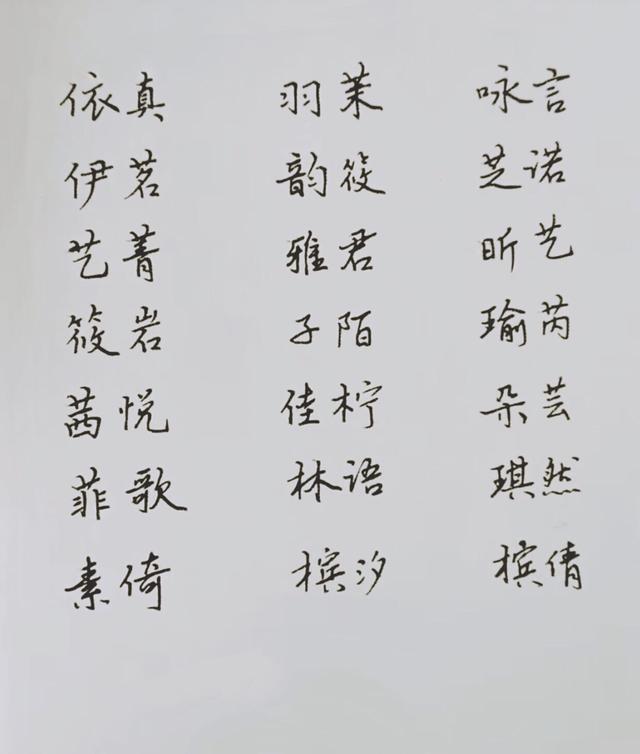 依真 羽茉 咏言
伊茗 韵筱 芝诺
艺菁 雅君 昕艺
筱岩 子陌 瑜芮
茜悦 佳柠 朵芸
菲歌 林语 琪然
素倚 槟汐 槟倩